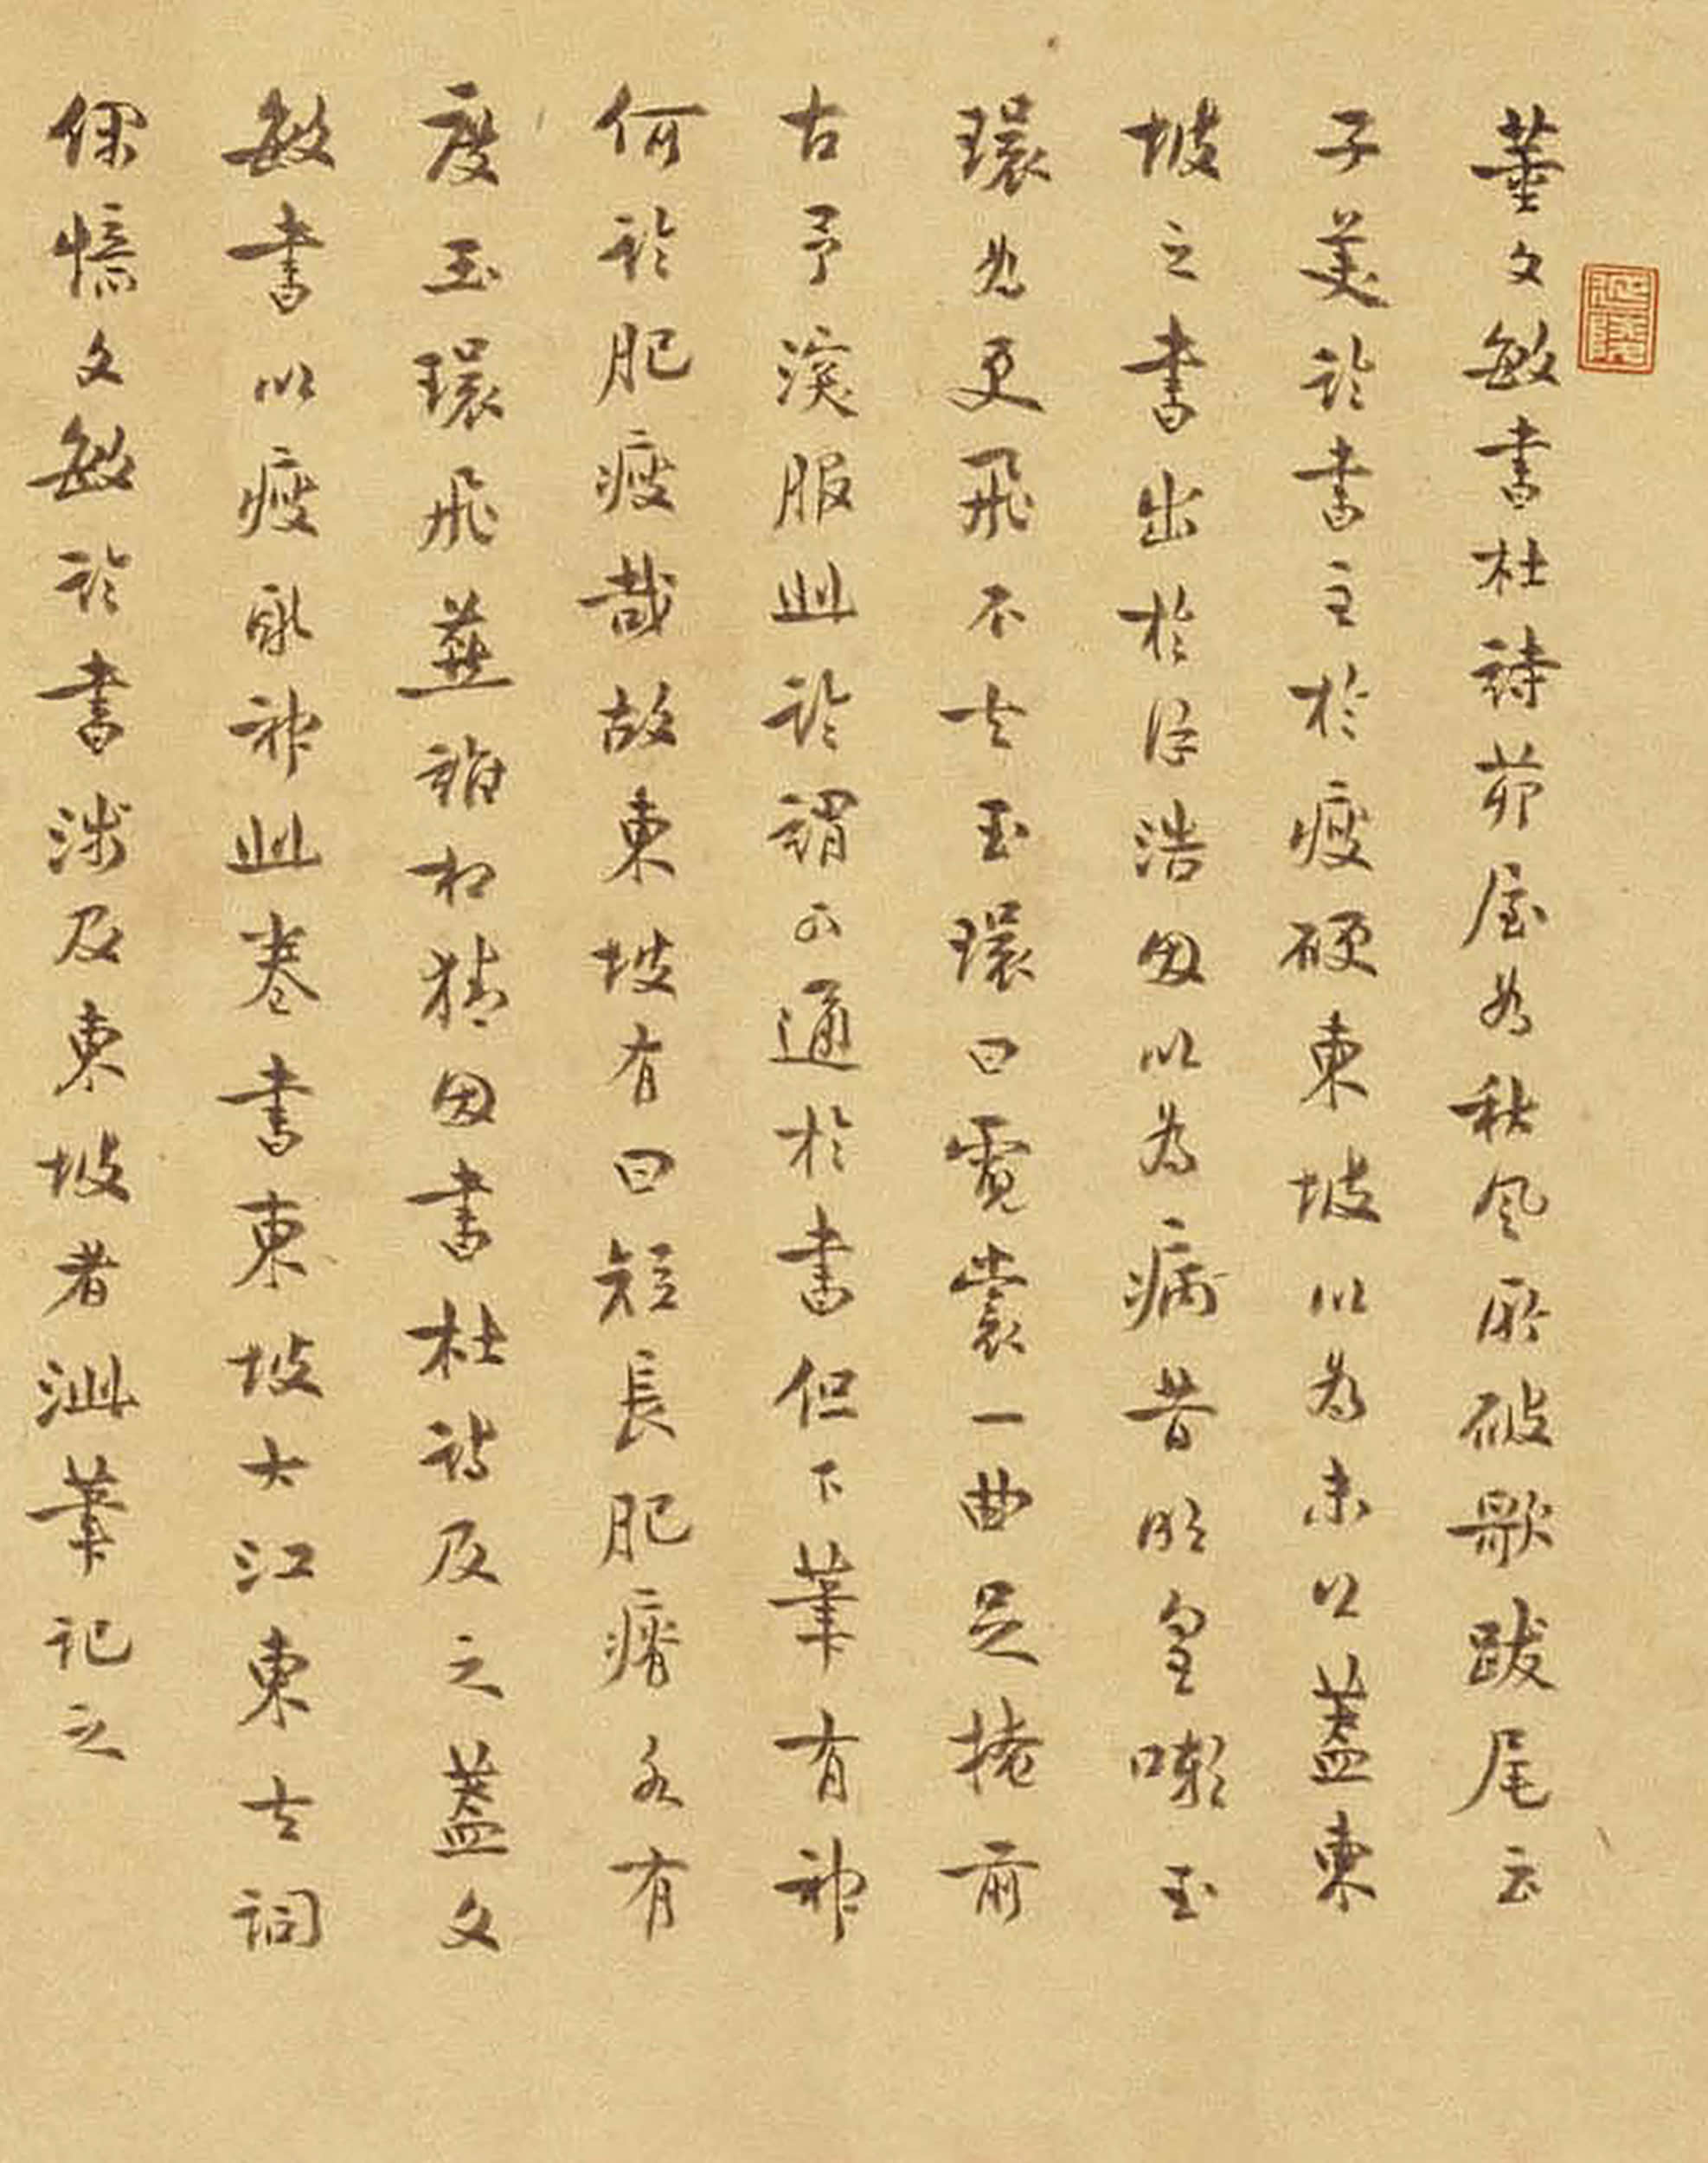 董文敏書杜詩茆屋為秋風所破歌跋尾云
子美論書主於瘦硬東坡以為未公蓋東
坡之書出於徐浩因以為病昔明皇嘲玉
環為更飛不去玉環曰霓裳一曲足掩前
古予深服此論謂可通於書但下筆有神
何論肥瘦哉故東坡有曰短長肥瘠各有
度玉環飛燕誰相猜因書杜詩及之蓋文
敏書以瘦取神此卷書東坡大江東去詞
偶憶文敏論書涉及東坡者泚筆記之